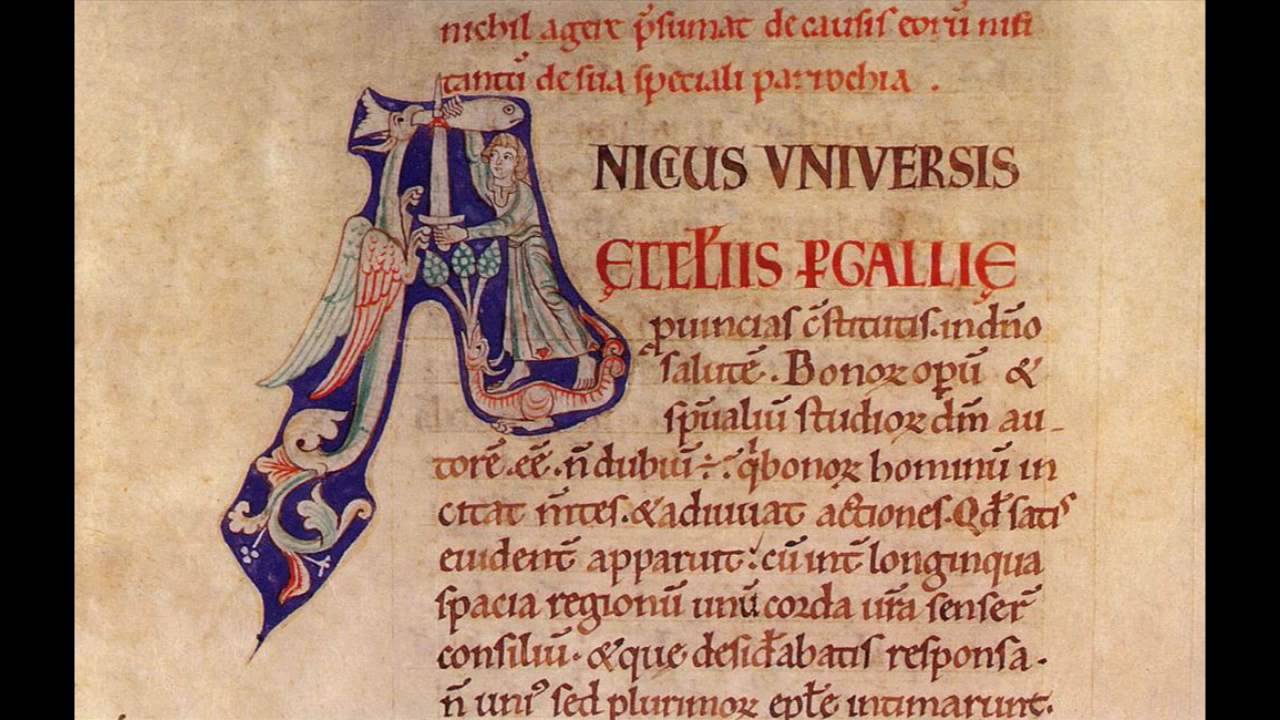 nichil agere p̄sumat de causis eorū nisi
tantū de sua speciali parrochia .
ANICIUS VNIVERSIS
ĘCCLꝉIIS ꝑ GALLIĘ
ꝓuincias c̄stitutis. in dn̄o
salutē. Bonoꝝ oꝑū &
sp̄ualiū studioꝝ dm̄ au-
torē. eē. n̄ dubiū ÷. q̇ bonoꝝ hominū in
citat m̄tes. & adiuuat actiones. Qd̄ satis
euident̄ apparuit: cū int̄ longinqua
spacia regionū unū corda ur̄a senser̄
consiliū. & que desid̄abatis responsa.
n̄ uni᾽ sed plurimoꝝ ep̄łe intimarunt.